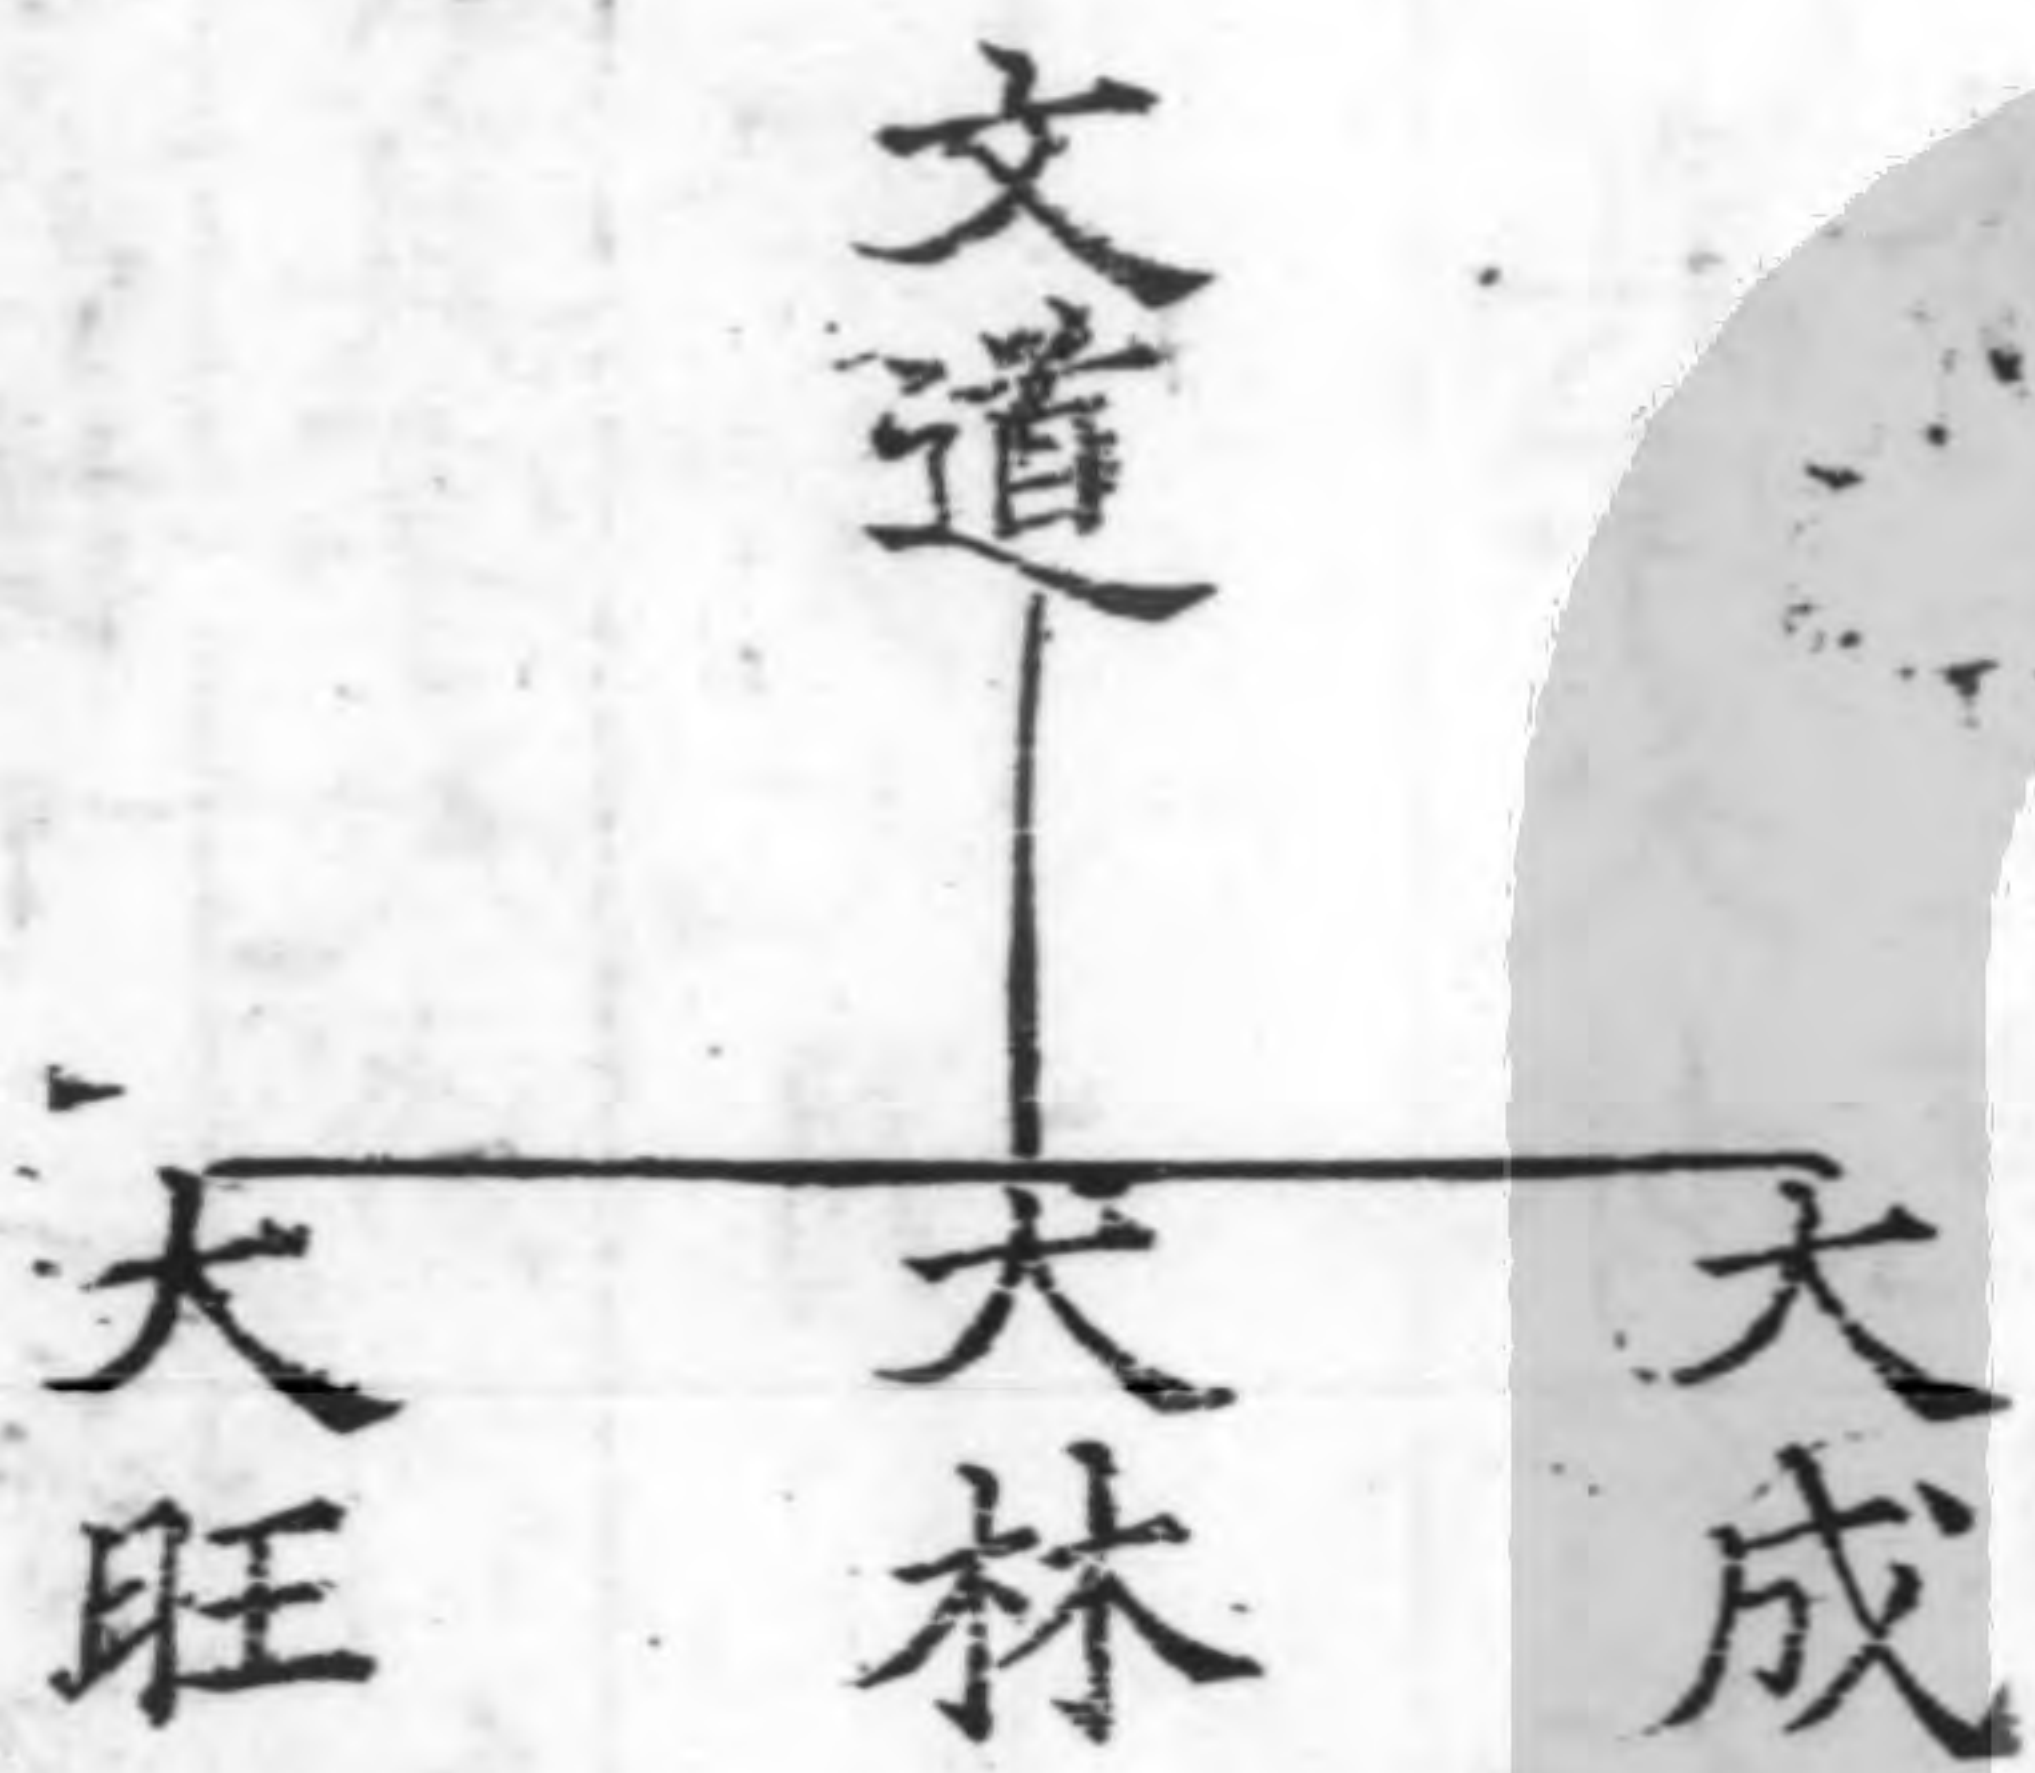 文道
大成
大林
大旺